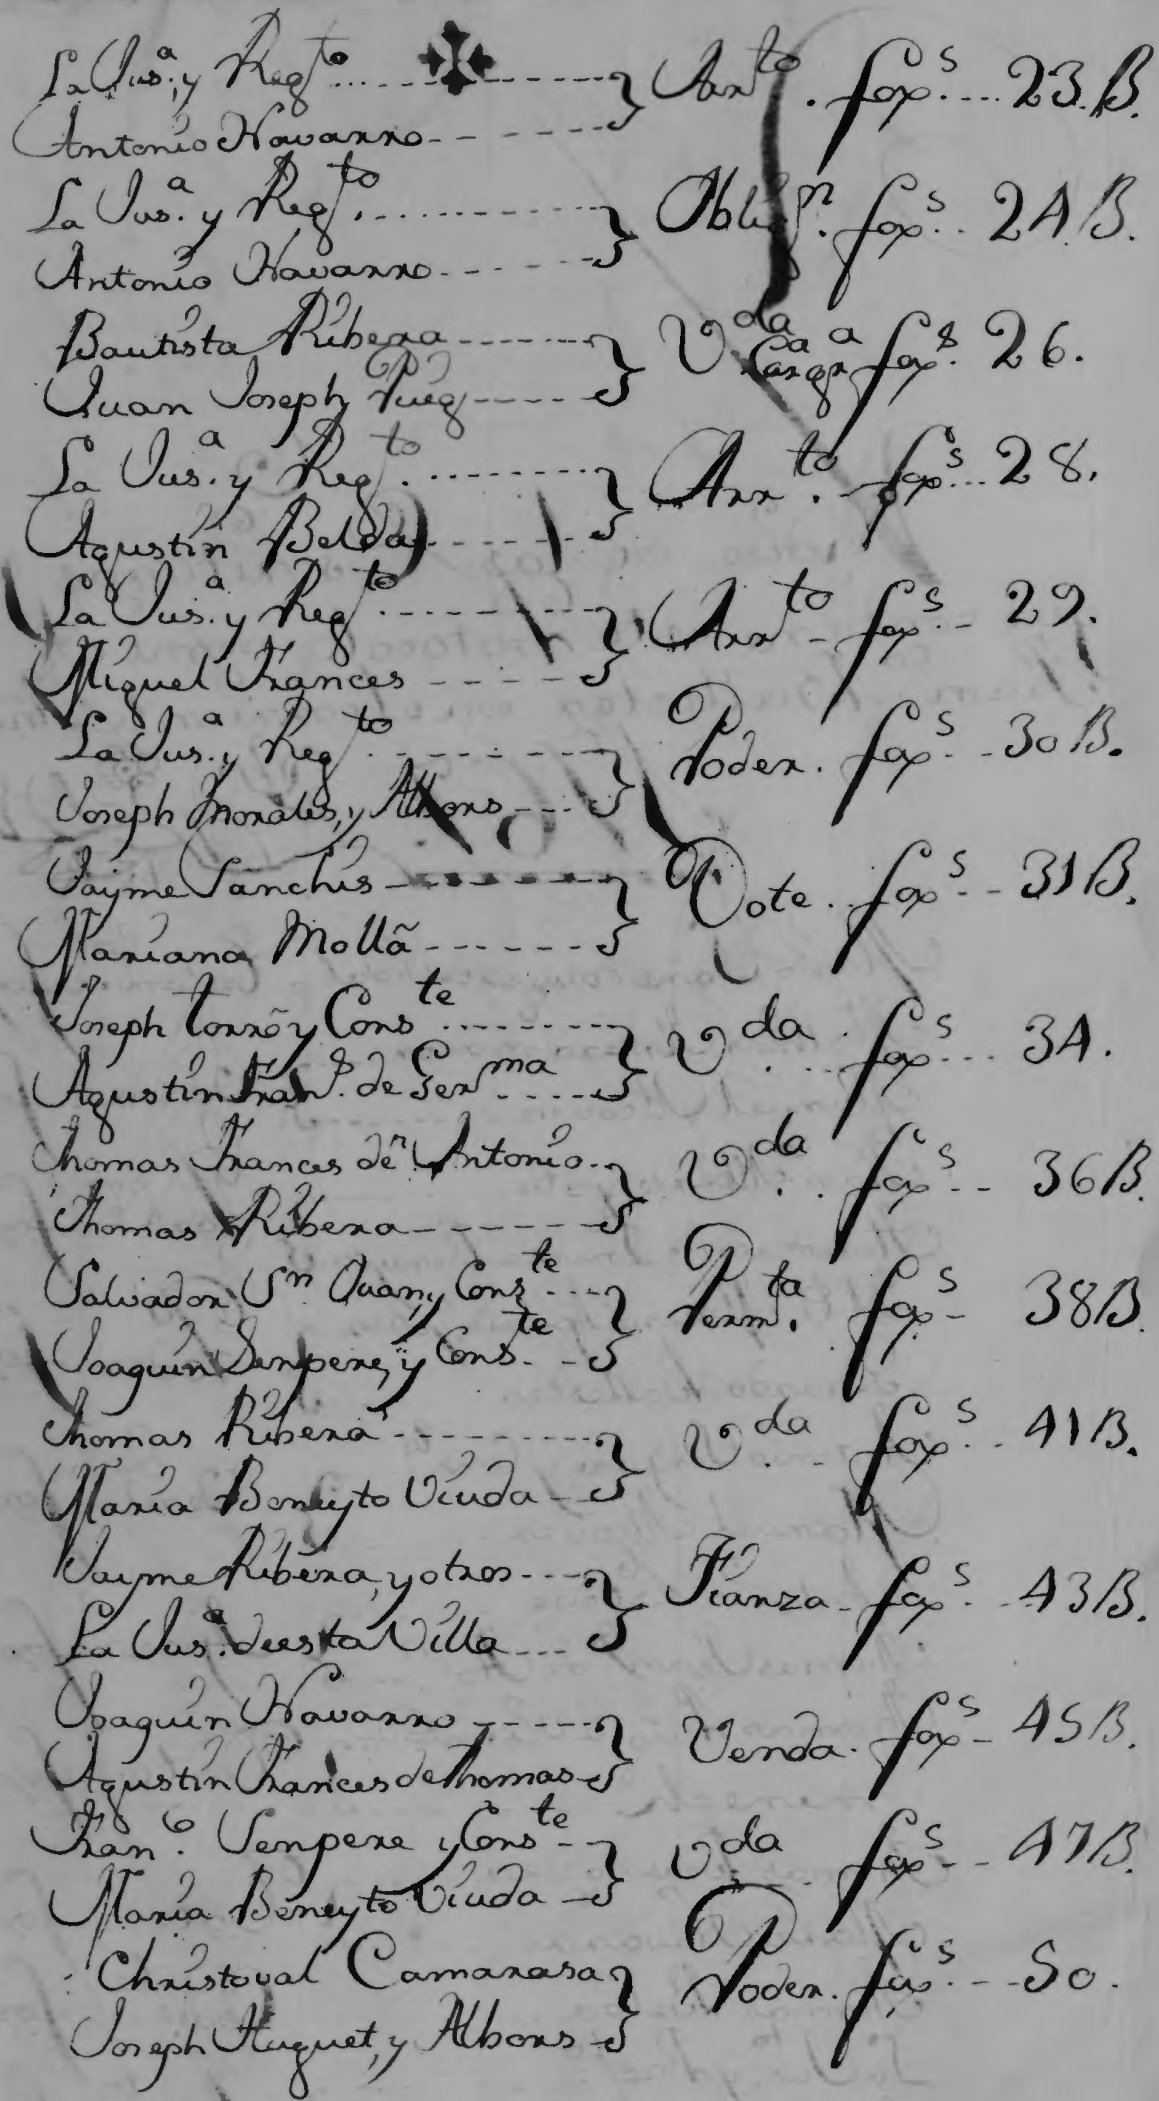 La Jusª. y Regto. ........ } Arrto. foxs. ... 23.B.
Antonio Navarro - - - - - }
La Jusª. y Regto. ........ } Oblign. foxs. .. 24.B.
Antonio Navarro - - - - - }
Bautista Ribera - - - - - } Vda Cargª a foxs. 26.
Juan Joseph Puig - - - - }
La Jusª. y Regto. ........ } Arrto. foxs. ... 28.
Agustin Belda - - - - - }
La Jusª. y Regto. ........ } Arrto - foxs. .. 29.
Miguel Frances - - - - - }
La Jusª. y Regto. ........ } Poder. foxs. .. 30B.
Joseph Morales, y Albors - - - }
Jayme Sanchis - - - - - } Dote. foxs. - - 31B.
Mariana Mollã - - - - - }
Joseph Torrõ y Conste ........ } Vda. foxs. ... 34.
Agustin Frans. de Germa ..... }
Thomas Frances den. Antonio. } Vda. foxs. - - 36B.
Thomas Ribera - - - - - }
Salvador Sn Juan, y Conste ... } Permta. foxs - 38B.
Joaquin Sempere, y Conste. - }
Thomas Ribera - - - - - } Vda foxs. .. 41B.
Maria Beneyto Viuda - }
Jayme Ribera, y otros - - - } Fianza - foxs. .. 43B.
La Jusª. de esta Villa ... }
Joaquin Navarro - - - - - } Venda. foxs - 45B.
Agustin Frances de Thomas - }
Franco. Sempere y Conste - } Vda foxs. - - 47B.
Maria Beneyto Viuda - }
Christoval Camarasa } Poder. foxs. - - 50.
Joseph Huguet, y Albors - }